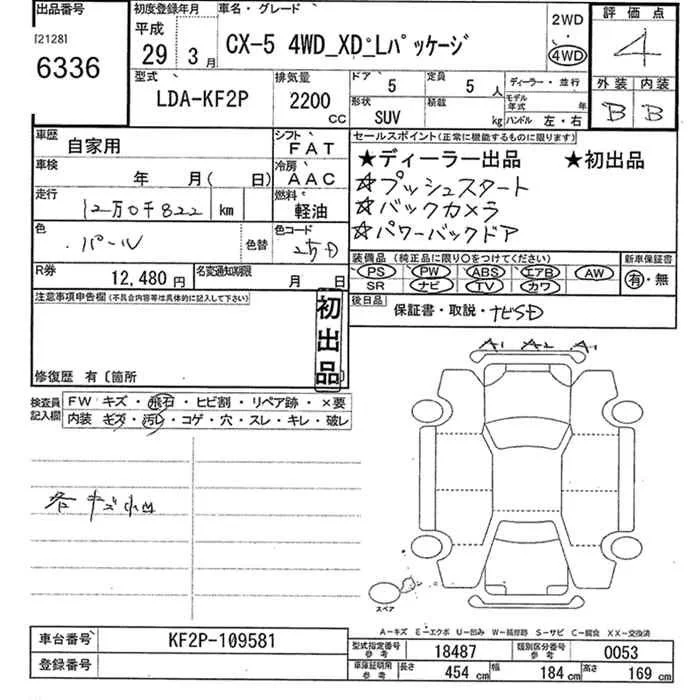 出品番号
[2128]
6336
初度登録年月
平成
29 3月
車名・グレード
CX-5 4WD_XD_Lパッケージ
2WD
・
4WD
評価点
4
外装 内装
B B
型式
LDA-KF2P
排気量
2200
CC
ドア
5
定員
5人
形状
SUV
積載
kg
ディーラー・並行
モデル年式 年
ハンドル 左・右
車歴
自家用
シフト
FAT
車検
年 月( 日)
冷房
AAC
走行
12万0千822 km
燃料
軽油
色
パール
色替
色コード
25D
R券
12,480円
名変通知期限
月 日
セールスポイント(正常に機能するものに限ります)
★ディーラー出品 ★初出品
☆プッシュスタート
☆バックカメラ
☆パワーバックドア
装備品 (純正品に限り○をつけてください)
PS PW ABS エアB AW
SR ナビ TV カワ
新車保証書
有・無
後日品
保証書・取説・ナビSD
注意事項申告欄(不具合内容等は具体的に記入して下さい)
初出品
修復歴 有〔箇所
検査員記入欄
FW キズ・飛石・ヒビ割・リペア跡・×要
内装 キズ・汚レ・コゲ・穴・スレ・キレ・破レ
各キズ凹
A1 A2 A1
スペア
A-キズ E-エクボ U-凹み W-補修跡 S-サビ C-腐食 XX-交換済
車台番号
KF2P-109581
登録番号
型式指定番号 参考
18487
類別区分番号 参考
0053
車庫証明用 参考
長さ 454 cm
幅 184 cm
高さ 169 cm